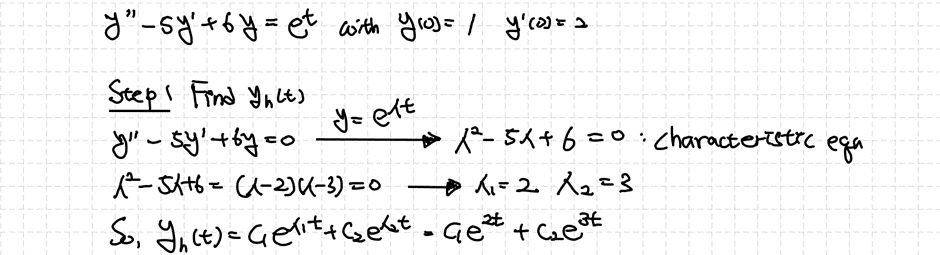 y'' - 5y' + 6y = e^t with y(0) = 1 y'(0) = 2
Step 1 Find y_h(t)
y'' - 5y' + 6y = 0 → y = e^{λt} λ² - 5λ + 6 = 0 : characteristic eqn
λ² - 5λ + 6 = (λ-2)(λ-3) = 0 → λ₁ = 2 λ₂ = 3
So, y_h(t) = C₁e^{λ₁t} + C₂e^{λ₂t} = C₁e^{2t} + C₂e^{3t}